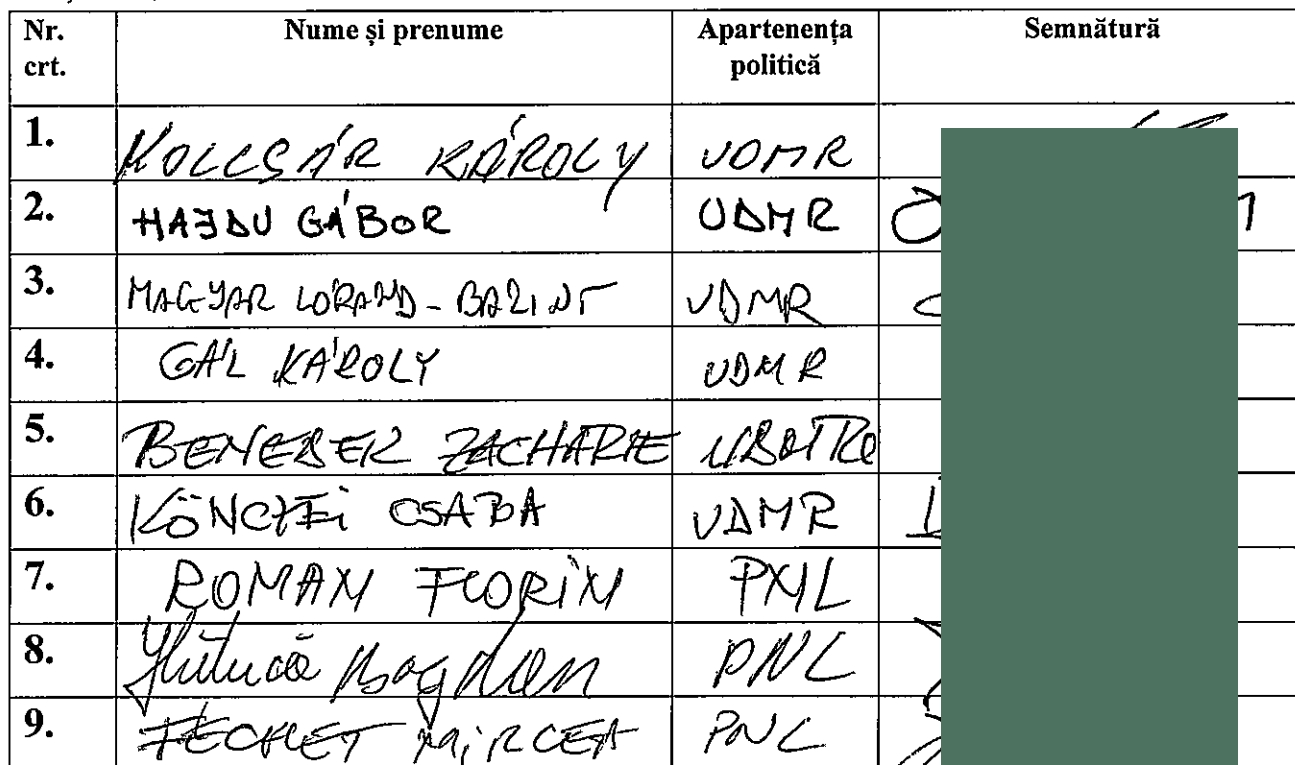 Nr. crt. Nume și prenume Apartenența politică Semnătură
1. KOLCSÁR KÁROLY UDMR
2. HAJDU GÁBOR UDMR
3. MAGYAR LORÁND-BÁLINT UDMR
4. GÁL KÁROLY UDMR
5. BENEDEK ZACHARIE
6. KÖNCZEI CSABA UDMR
7. ROMAN FLORIN PNL
8. Huțucă Bogdan PNL
9. FECHET MIRCEA PNL